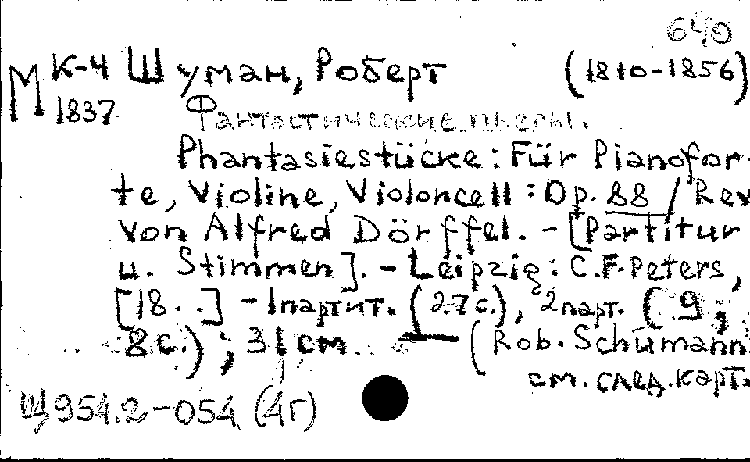 640
М К-4 Шуман, Роберт (1810-1856)
1837 Фантастические пьесы.
Phantasiestücke: Für Pianofor-
te, Violine, Violoncell: Op. 88 / Rev
von Alfred Dörffel. - [Partitur
u. Stimmen]. - Leipzig: C.F. Peters,
[18..] - 1 партит. (27 с.), 2 парт. (9;
8 с.); 31 см. — (Rob. Schumann
см. след. карт.
Щ954.2-054 (4Г)